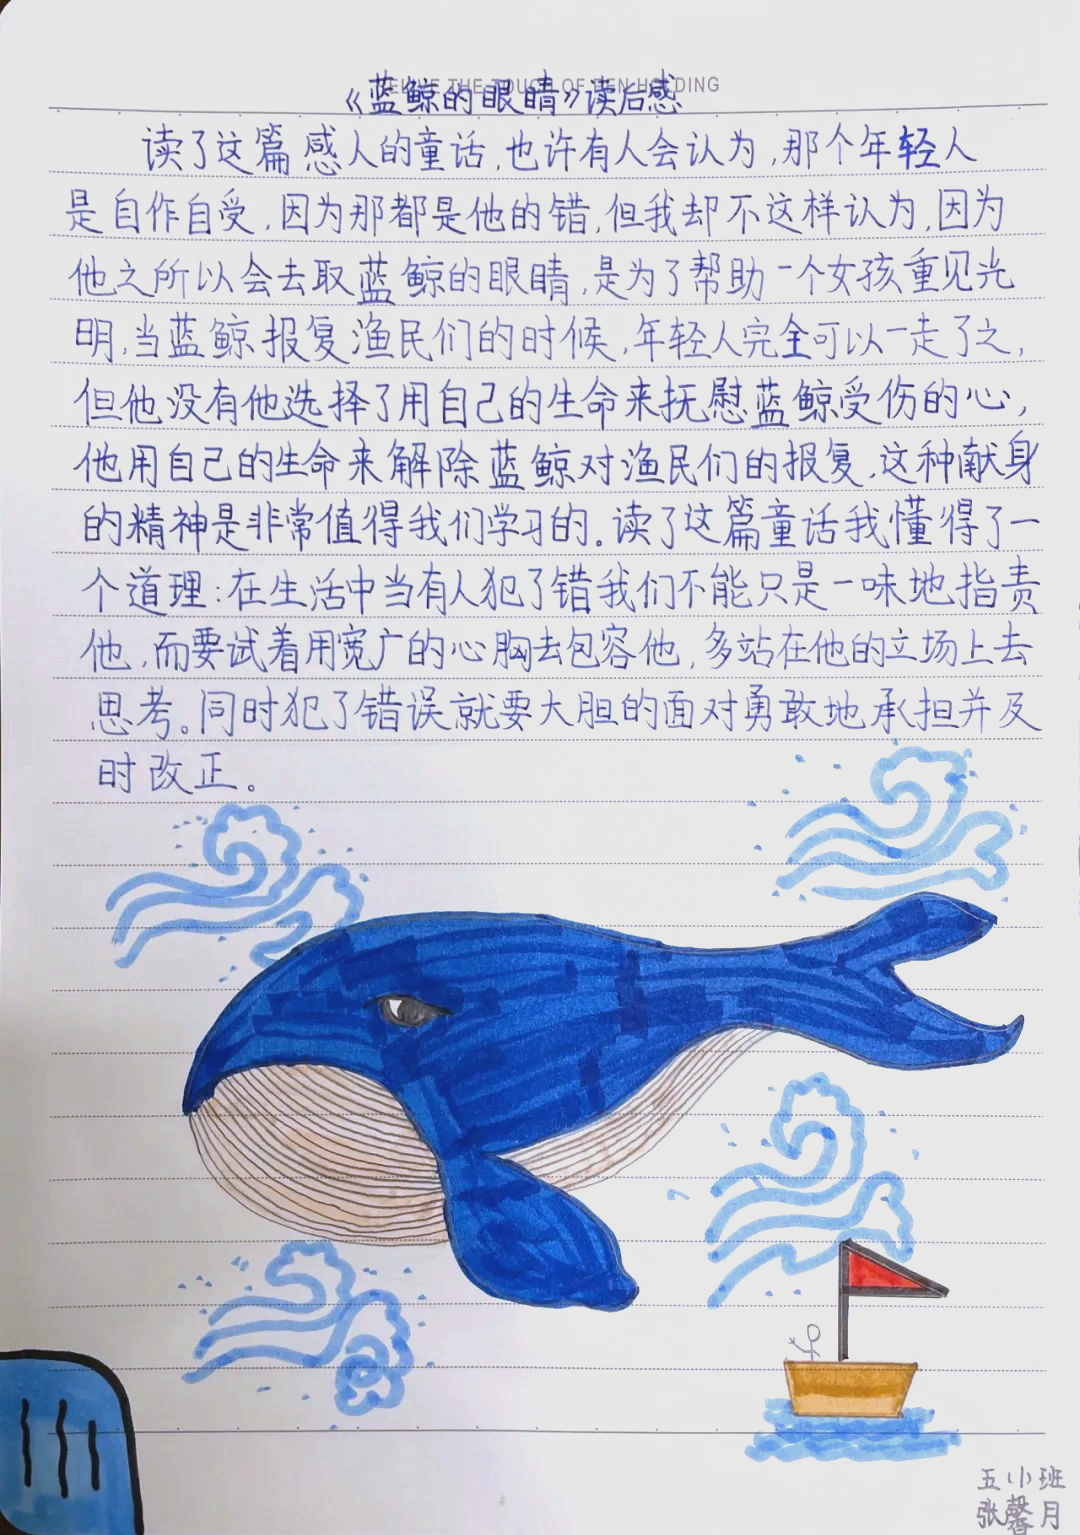 《蓝鲸的眼睛》读后感
读了这篇感人的童话,也许有人会认为,那个年轻人
是自作自受,因为那都是他的错,但我却不这样认为,因为
他之所以会去取蓝鲸的眼睛,是为了帮助一个女孩重见光
明,当蓝鲸报复渔民们的时候,年轻人完全可以一走了之,
但他没有他选择了用自己的生命来抚慰蓝鲸受伤的心,
他用自己的生命来解除蓝鲸对渔民们的报复,这种献身
的精神是非常值得我们学习的。读了这篇童话我懂得了一
个道理:在生活中当有人犯了错我们不能只是一味地指责
他,而要试着用宽广的心胸去包容他,多站在他的立场上去
思考。同时犯了错误就要大胆的面对勇敢地承担并及
时改正。
五小班
张馨月